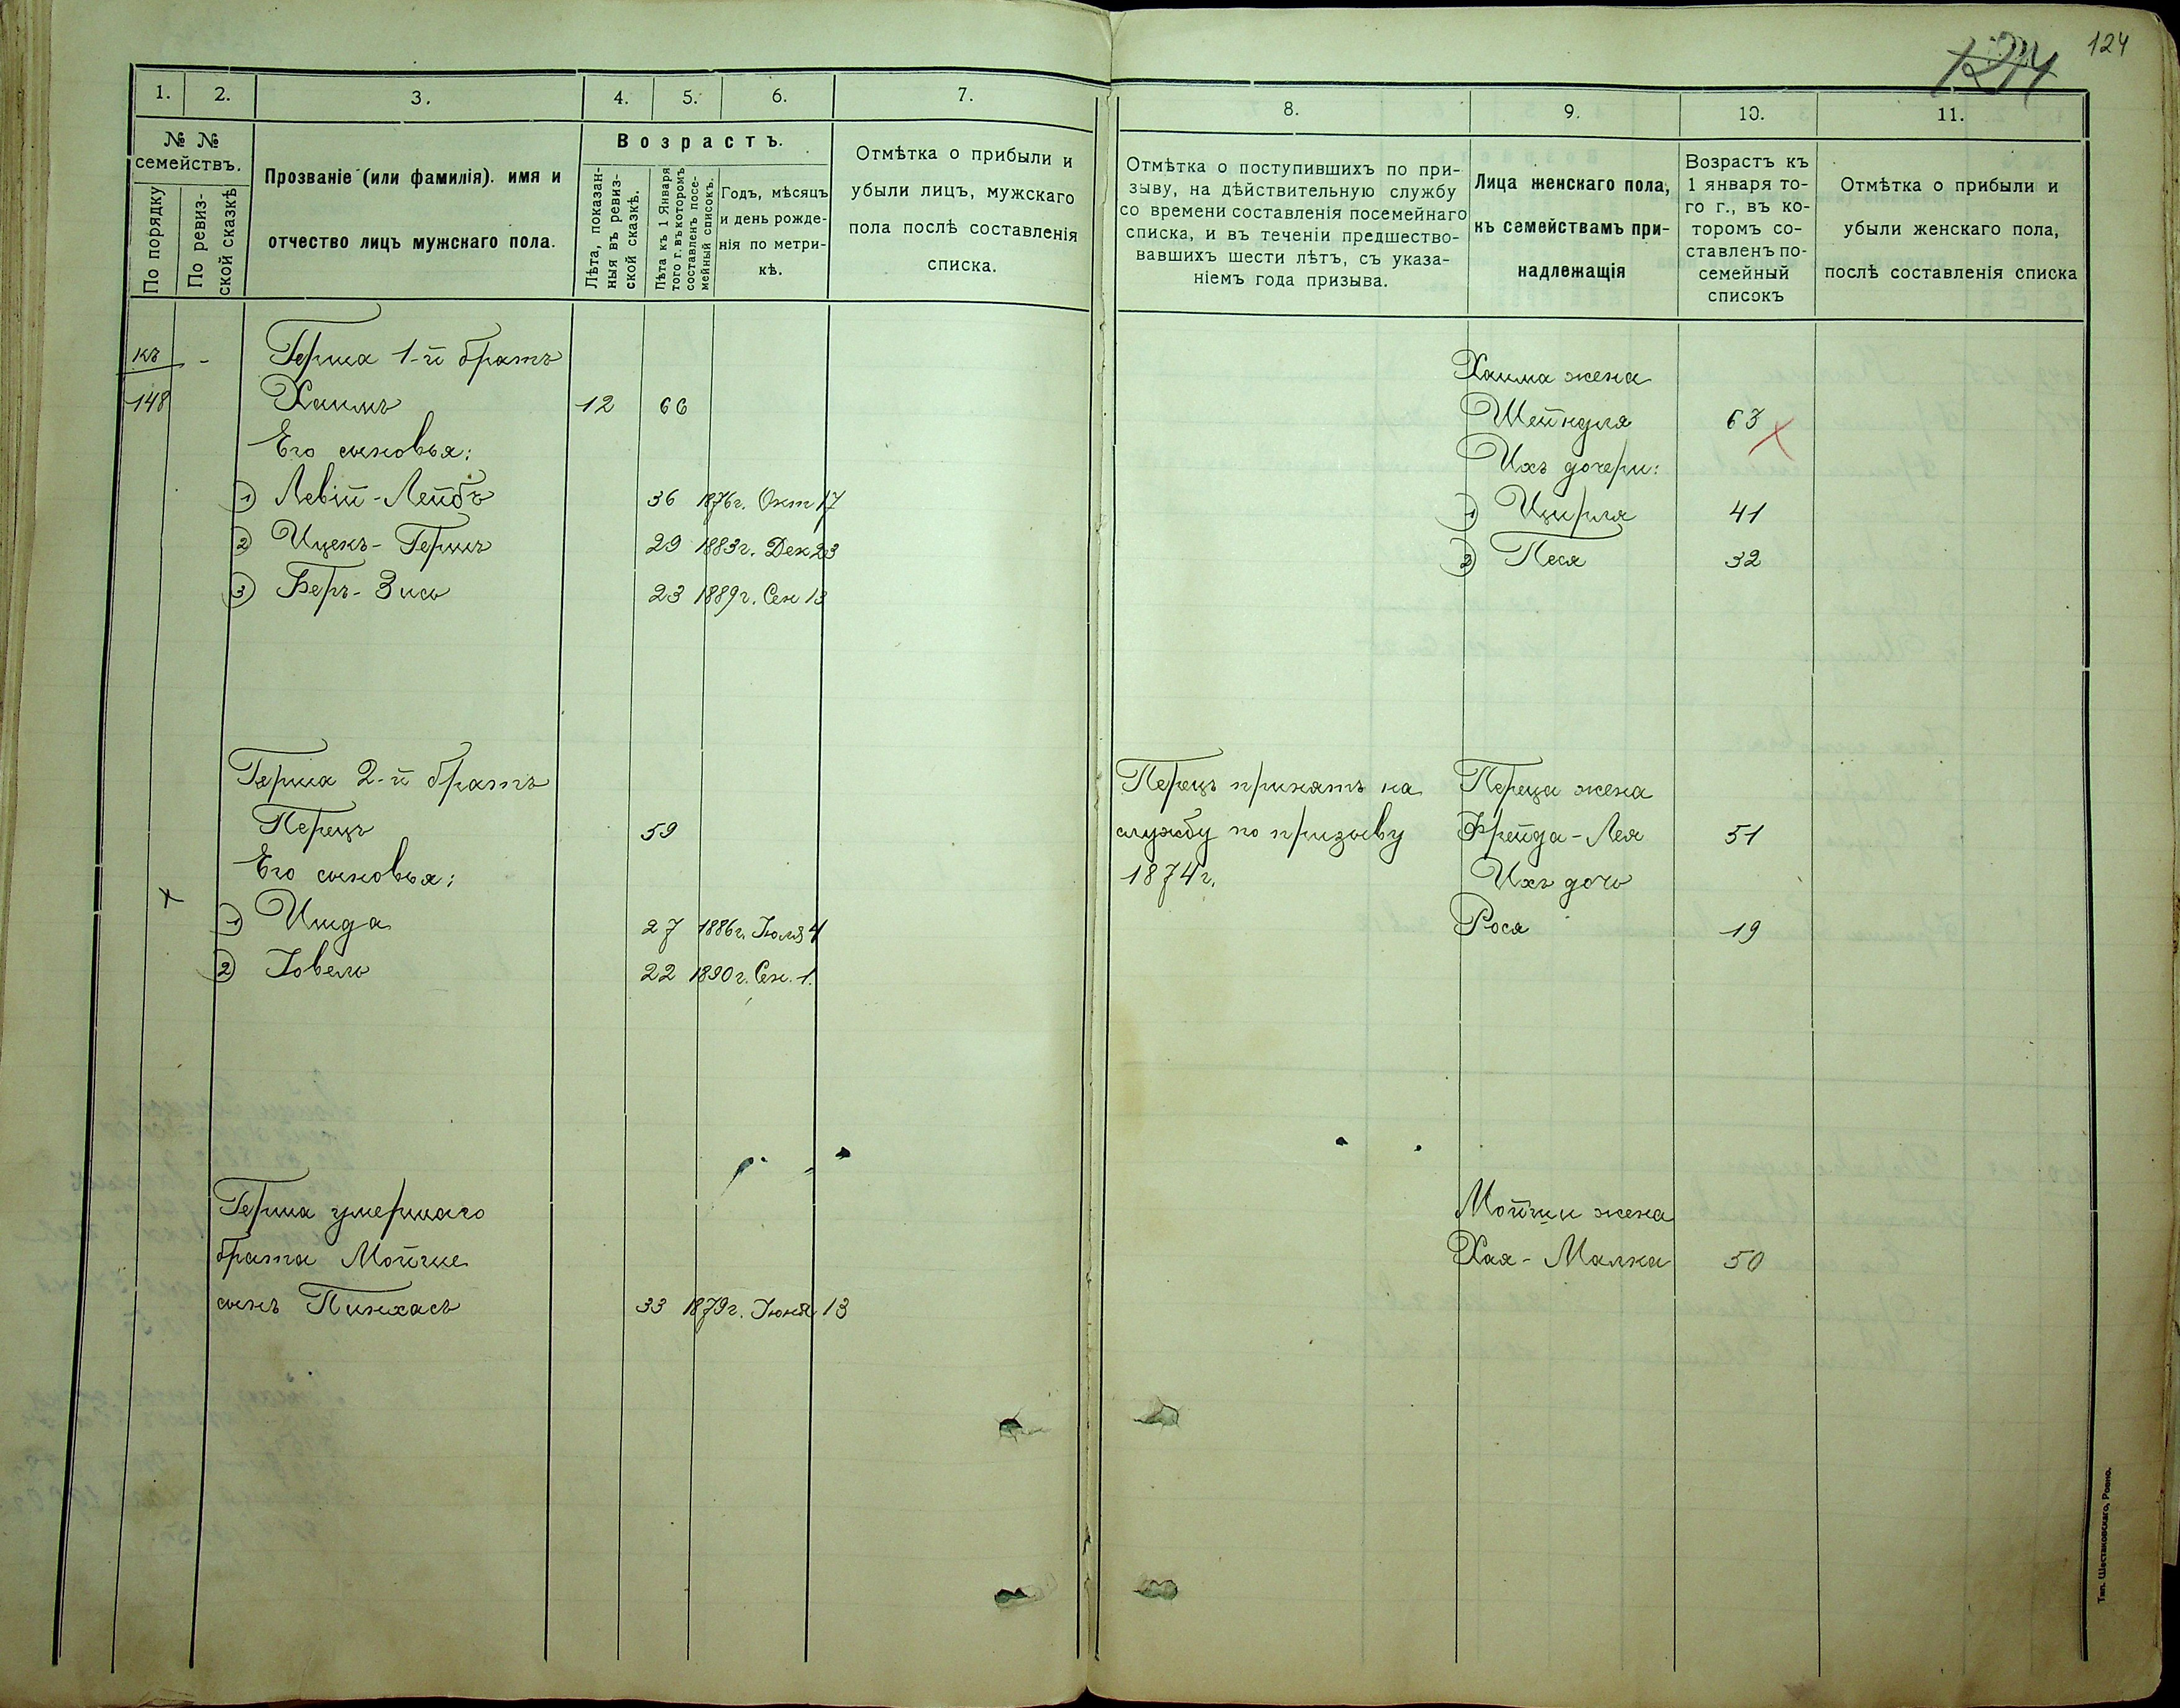 124
124
1.
2.
3.
4.
5.
6.
7.
№ №
семействъ.
По порядку
По ревиз-
ской сказкѣ
Прозваніе (или фамилія). имя и
отчество лицъ мужскаго пола.
Возрастъ.
Лѣта, показан-
ныя въ ревиз-
ской сказкѣ.
Лѣта къ 1 Января
того г. въ которомъ
составленъ посе-
мейный списокъ.
Годъ, мѣсяцъ
и день рожде-
нія по метри-
кѣ.
Отмѣтка о прибыли и
убыли лицъ, мужскаго
пола послѣ составленія
списка.
къ - Герша 1-й братъ
148 Хаимъ 12 66
Его сыновья:
1) Левій-Лейбъ 36 1876г. Окт 17
2) Ицекъ-Гершъ 29 1883г. Дек 23
3) Беръ-Зись 23 1889г. Сен 13
Герша 2-й братъ
Перецъ 59
Его сыновья:
1) Шида 27 1886г. Іюля 4
2) Іовель 22 1890г. Сен. 1.
Герша умершаго
брата Мойше
сынъ Пинхасъ 33 1879г. Іюня 13
8.
9.
10.
11.
Отмѣтка о поступившихъ по при-
зыву, на дѣйствительную службу
со времени составленія посемейнаго
списка, и въ теченіи предшество-
вавшихъ шести лѣтъ, съ указа-
ніемъ года призыва.
Лица женскаго пола,
къ семействамъ при-
надлежащія
Возрастъ къ
1 января то-
го г., въ ко-
торомъ со-
ставленъ по-
семейный
списокъ
Отмѣтка о прибыли и
убыли женскаго пола,
послѣ составленія списка
Хаима жена
Шейндля 63
Ихъ дочери:
1) Цирля 41
2) Песя 32
Перецъ принятъ на
службу по призыву
1874г.
Переца жена
Фрейда-Лея 51
Ихъ дочь
Рося 19
Мойши жена
Хая-Малка 50
Тип. Шестаковскаго, Ровно.